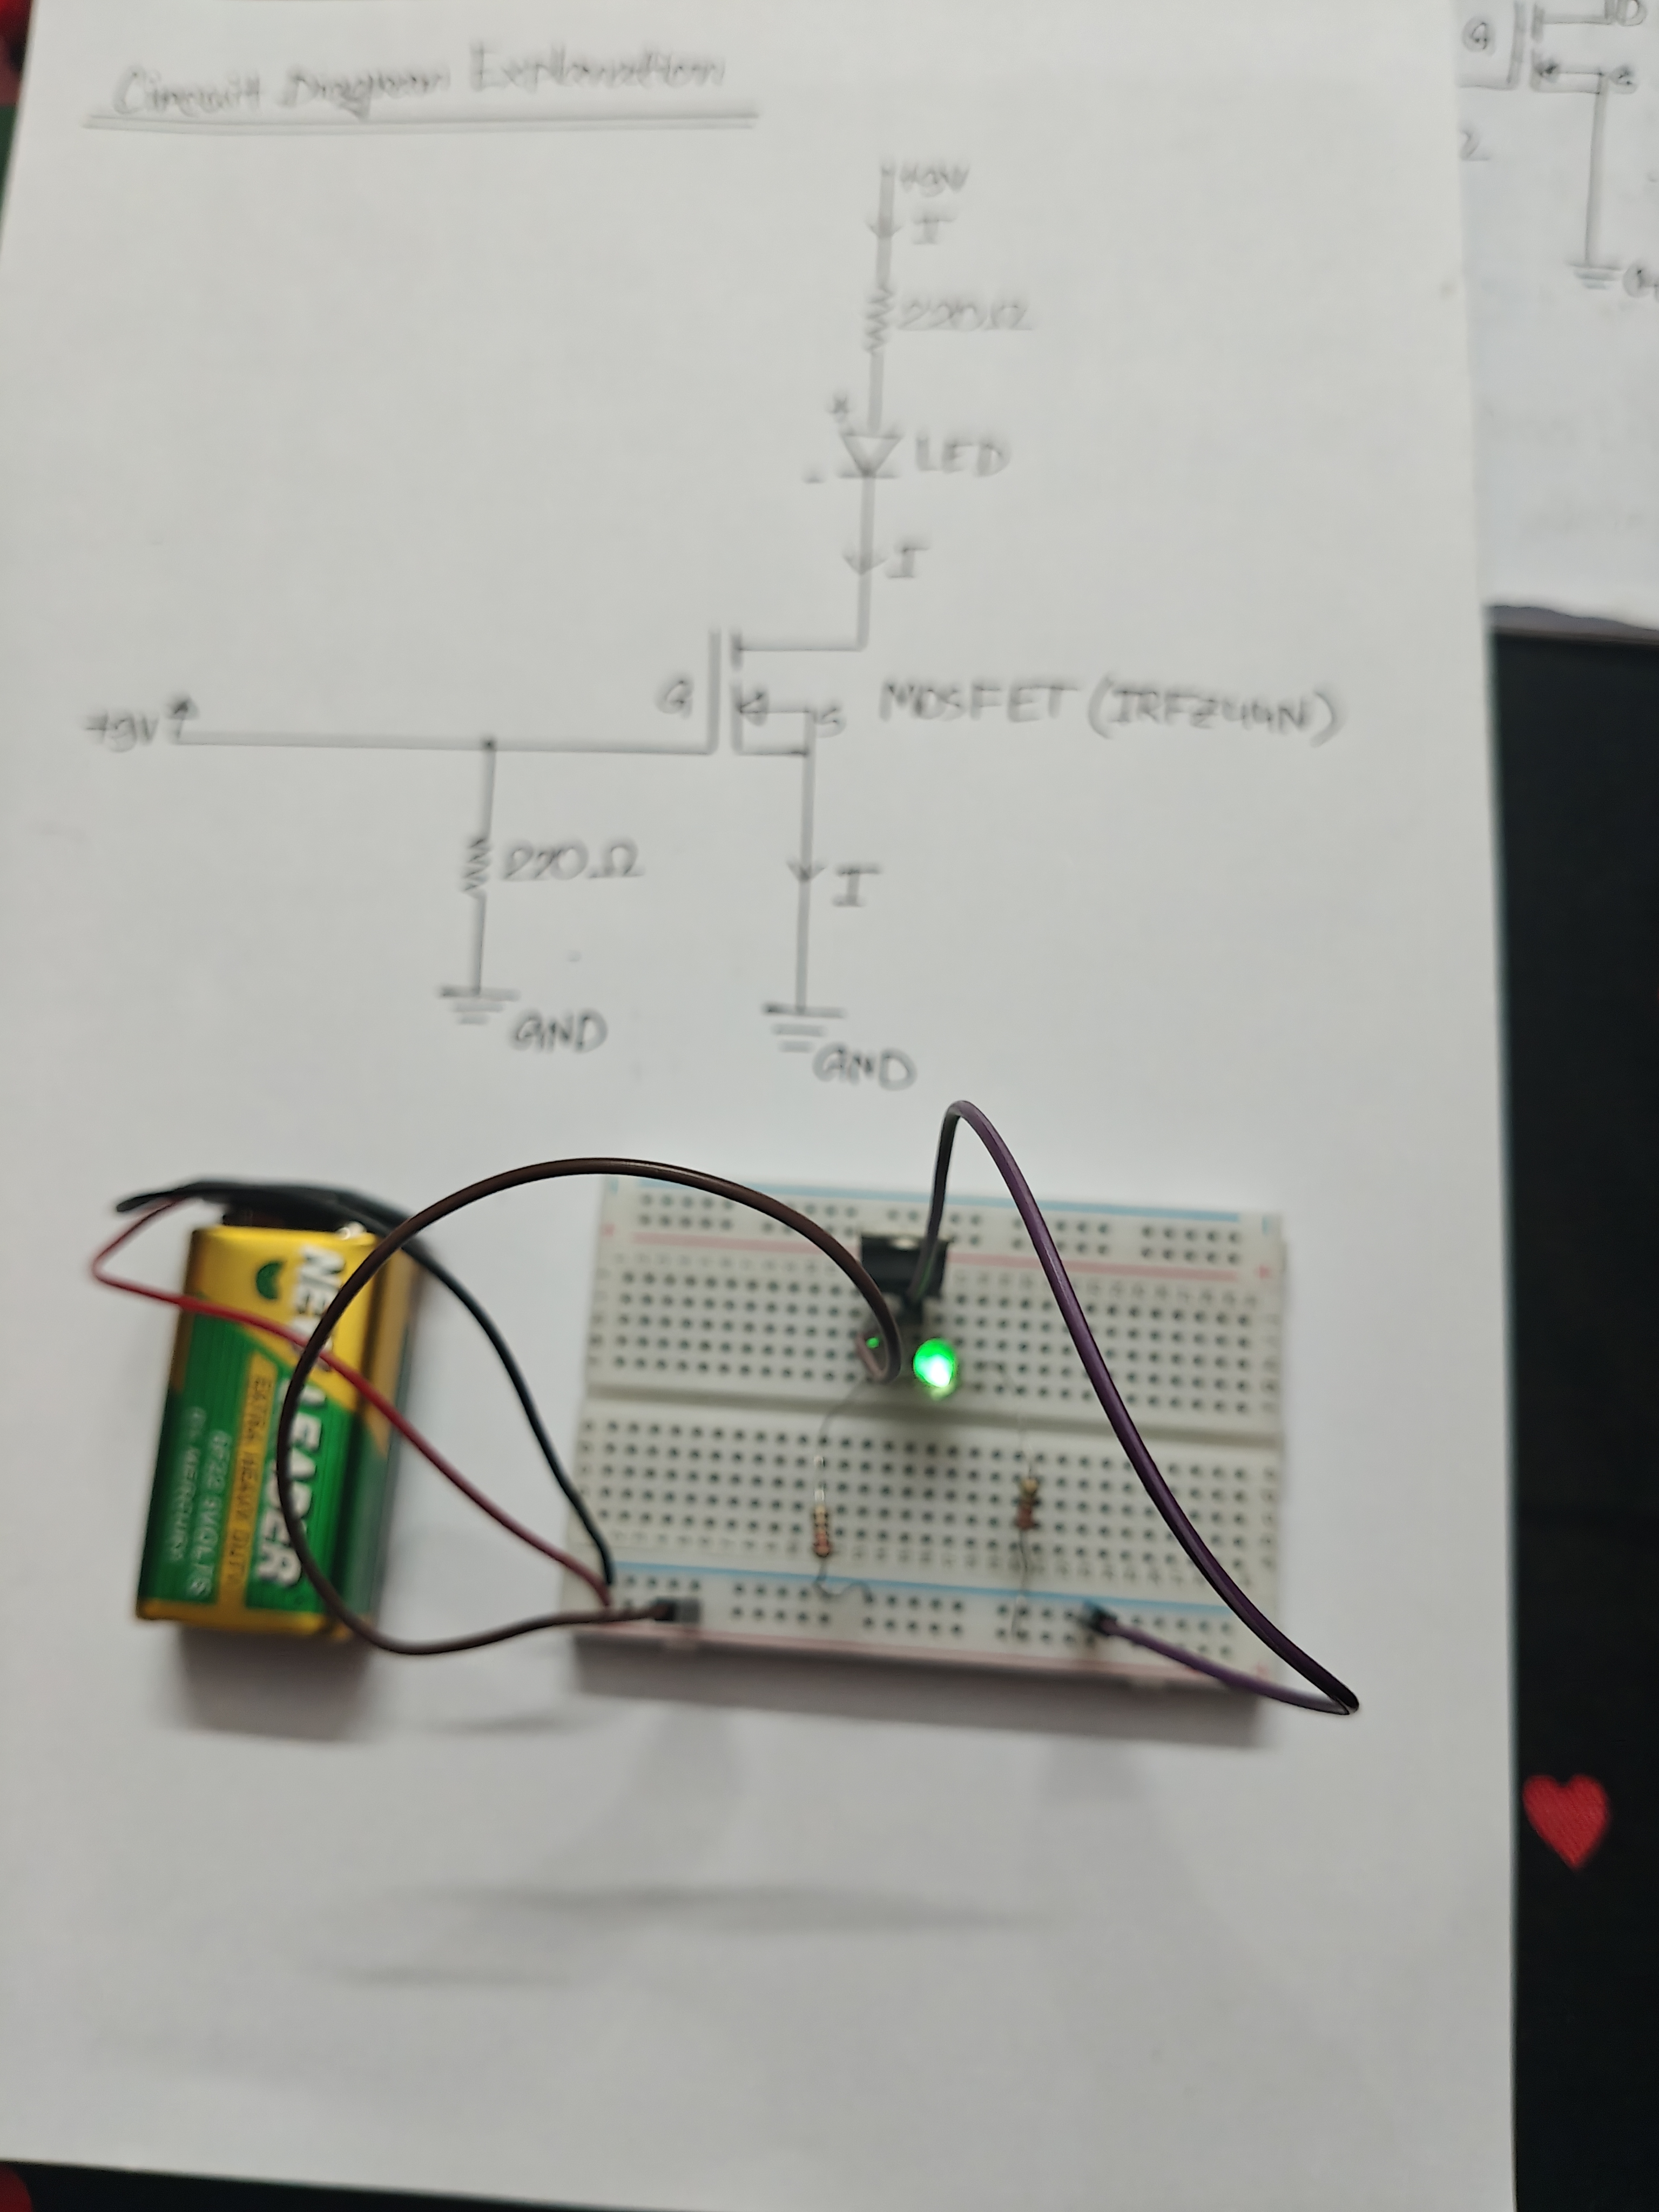 Circuit Diagram Explanation
+9V
I
220Ω
+
LED
-
I
G
S
MOSFET (IRFZ44N)
+9V
220Ω
I
GND
GND
G
D
S
2
NE
LEADER
EXTRA HEAVY DUTY
6F22 9VOLTS